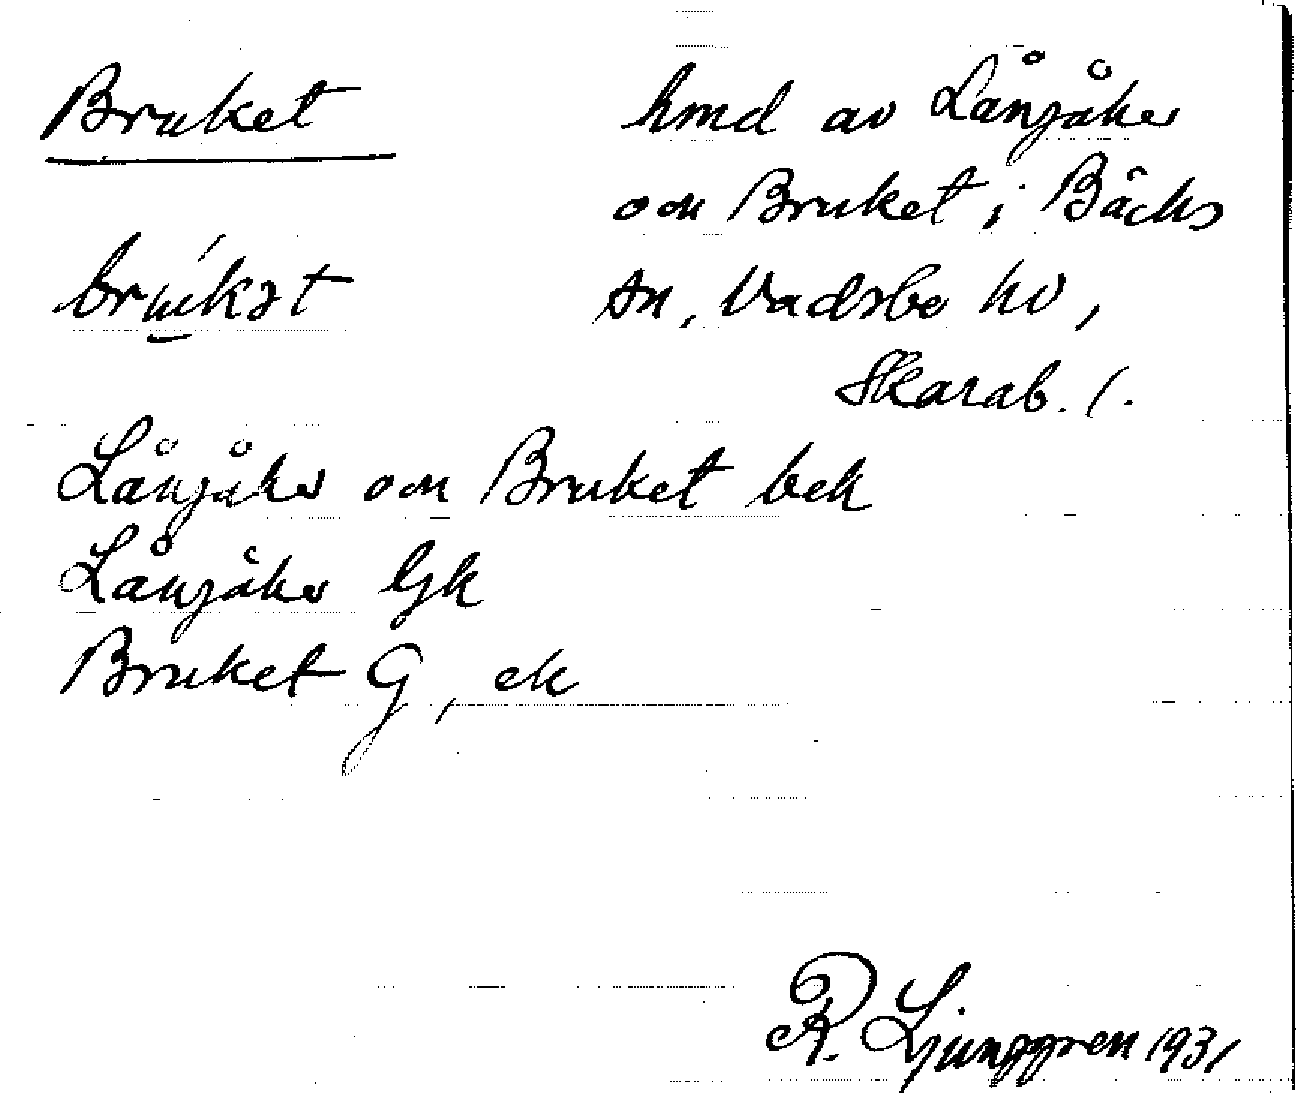 Bruket
hmd av Långåker
och Bruket i Bäcks
sn, Vadsbo hd,
Skarab. l.
brúkət
Långåker och Bruket bek
Långåker Gk
Bruket G, ek
R. Ljunggren 1931